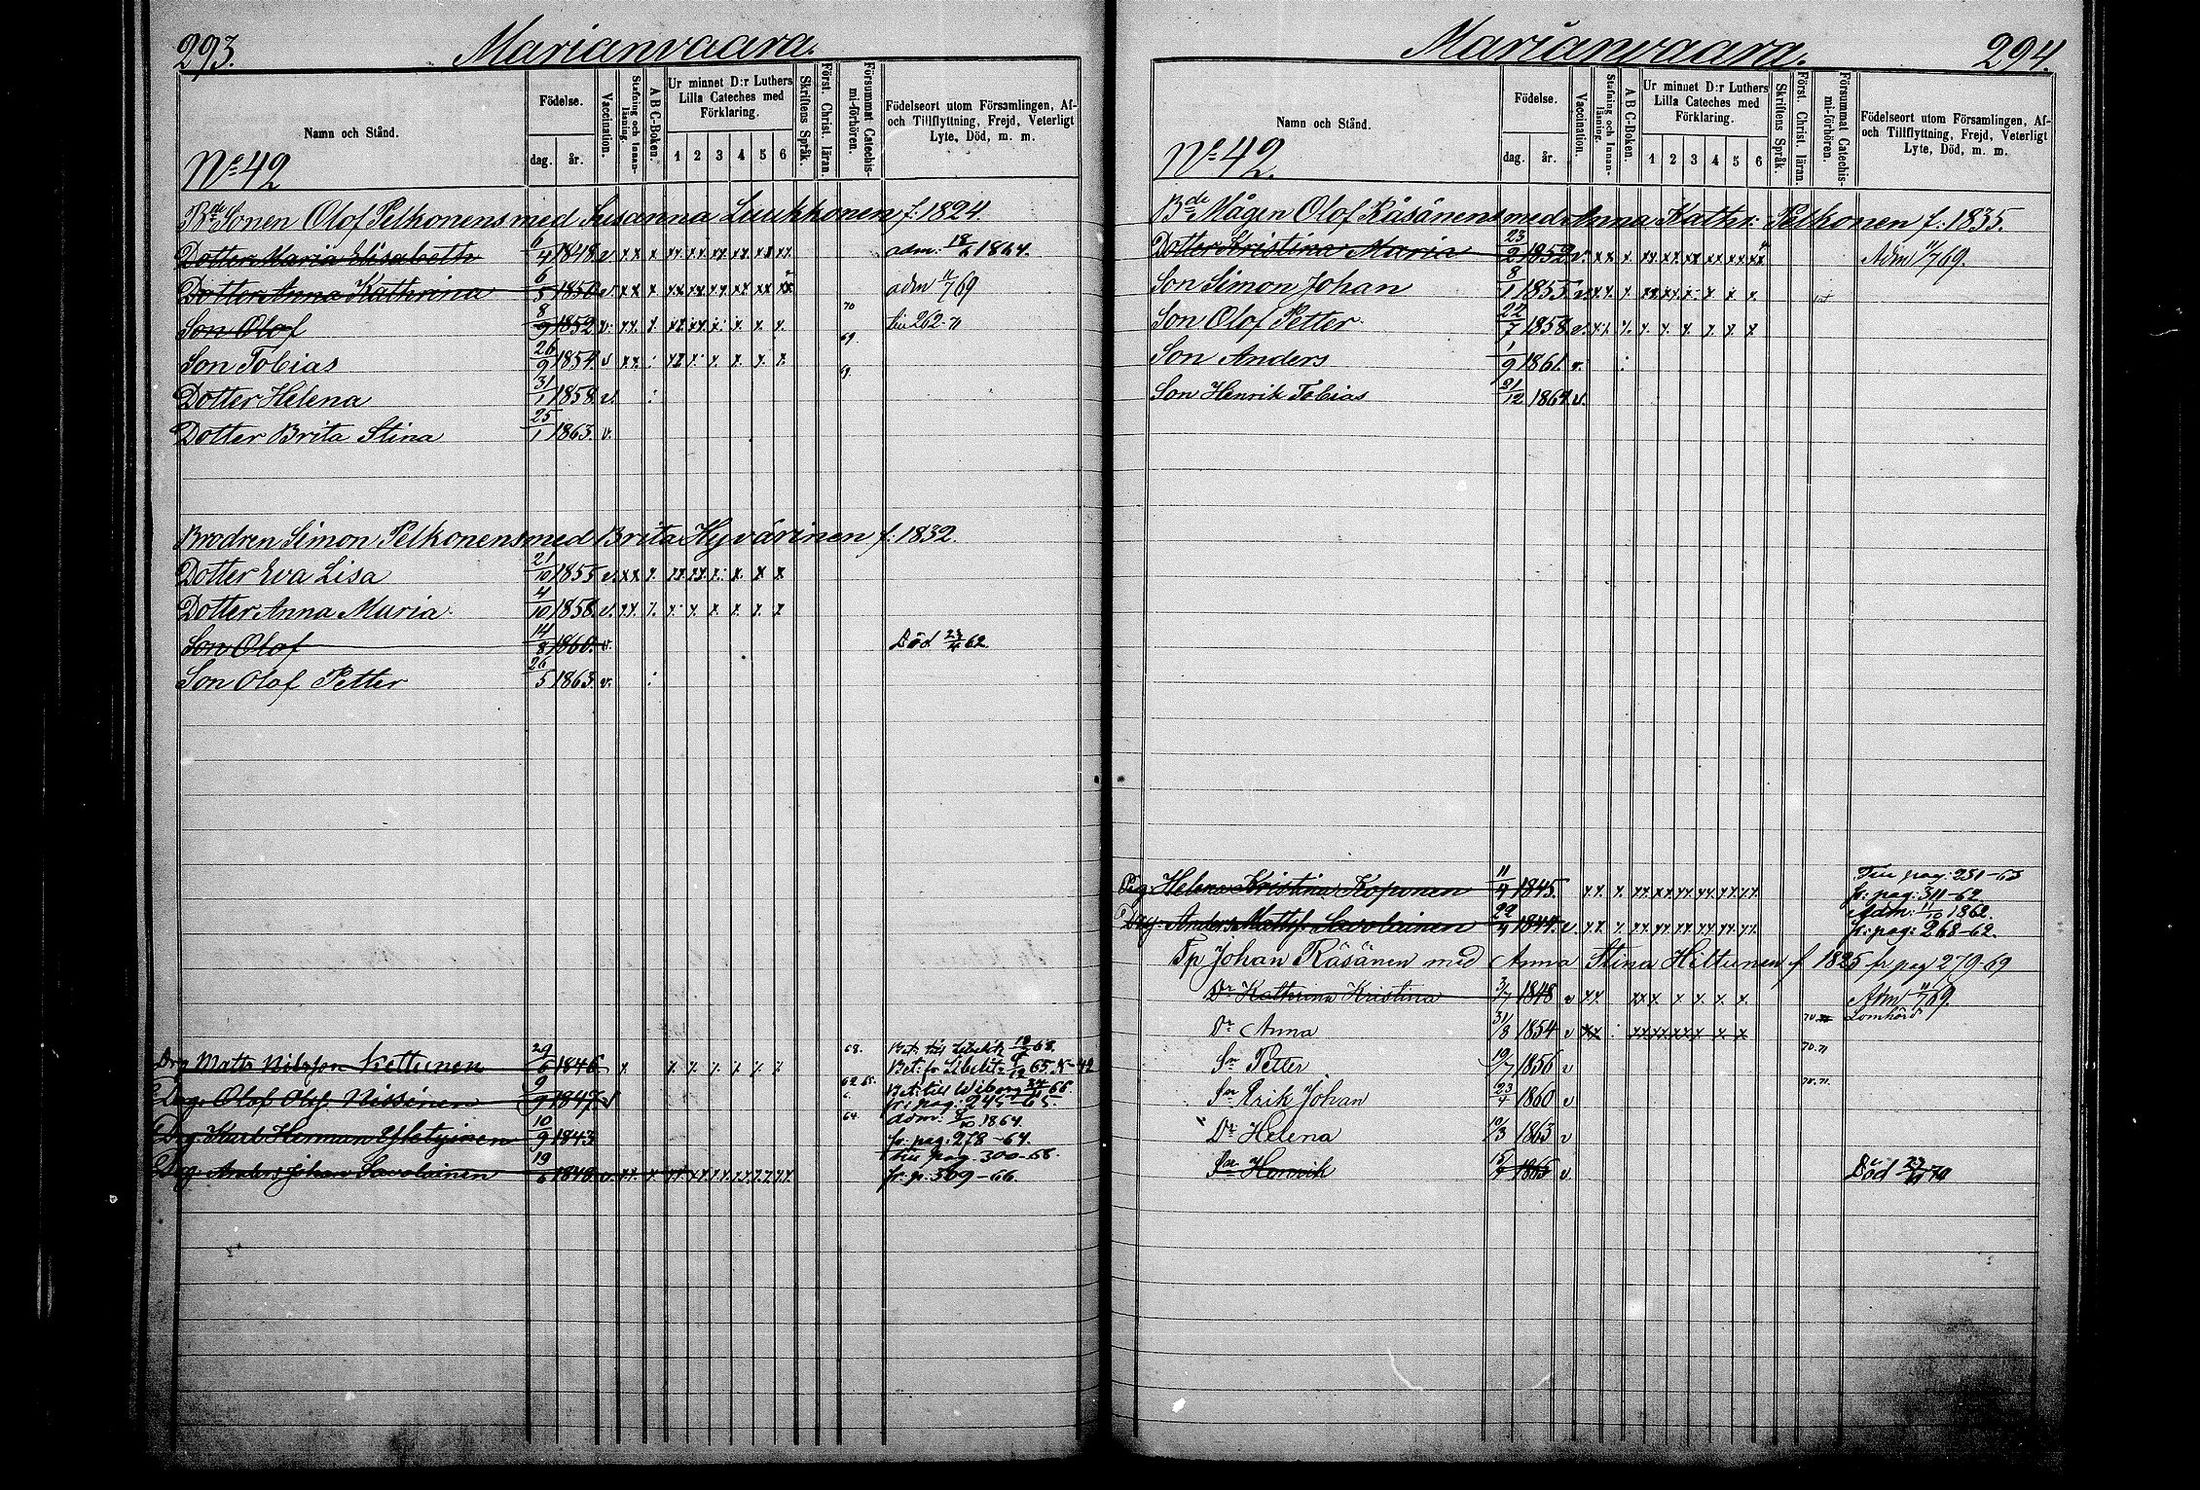 293.
Marianvaara.
Namn och Stånd.
Födelse.
dag. år.
Vaccination.
Stafning och Innan-läsning.
A B C-Boken.
Ur minnet D:r Luthers
Lilla Cateches med
Förklaring.
1 2 3 4 5 6
Skriftens Språk.
Först. Christ. läran.
Försummat Catechis-mi-förhören.
Födelseort utom Församlingen, Af-
och Tillflyttning, Frejd, Veterligt
Lyte, Död, m. m.
No 42
Bde Sonen Olof Pelkonens med Susanna Luukkonen f. 1824
Dotter Maria Elisabeth 6/4 1848 v xx x xx xx xx xx xx xx adm: 18/6 1864.
Dotter Anna Kathrina 6/5 1850 v xx x xx xx xx xx xx xx adm 11/7 69
Son Olof 8/9 1852 v. xx x. xx xx x x x x 70
Son Tobias 26/9 1854 v xx : xx x x x x 69.
Dotter Helena 31/1 1858 v. : 69.
Dotter Brita Stina 25/1 1863. v.
Brodren Simon Pelkonens med Brita Hyvärinen f. 1832.
Dotter Eva Lisa 21/10 1855 v. xx x. xx xx x x x x
Dotter Anna Maria 4/10 1858 v. xx x. x x x x x x
Son Olof 14/8 1860. v. Död 62.
Son Olof Petter 26/5 1863. v. :
Drg Matts Nilsson Kettunen 29/6 1846 x. x x x x x x 68.
Drg: Olof Olofs Nissinen 9/9 1847 v
Bet: till Wiborg 66.
fr: pag: 245-65.
Drg Karl Herman Ylätyinen 10/9 1843 64. adm: 1864.
fr. pag: 278-64.
till pag. 300-66.
Drg Anders Johan Savolainen 19/6 1848 v. xx. x. xx xx xx xx xx xx fr. p. 309-66.
Marianvaara. 294.
Namn och Stånd.
Födelse.
dag. år.
Vaccination.
Stafning och Innan-läsning.
A B C-Boken.
Ur minnet D:r Luthers
Lilla Cateches med
Förklaring.
1 2 3 4 5 6
Skriftens Språk.
Först. Christ. läran.
Försummat Catechis-mi-förhören.
Födelseort utom Församlingen, Af-
och Tillflyttning, Frejd, Veterligt
Lyte, Död, m. m.
No 42.
Bde Mågen Olof Räsänens med Anna Kathr: Pelkonen f: 1835.
Dotter Kristina Maria 23/2 1852 v. xx x xx xx xx xx xx xx Adm 11/7 69.
Son Simon Johan 8/1 1855 v. xx. x. xx x x x x x
Son Olof Petter 22/7 1858. v. xx x. x x x x x x
Son Anders 1/9 1861. v. :
Son Henrik Tobias 21/12 1864. v.
Pig. Helena Kristina Koponen 11/4 1845. xx x. xx xx xx xx xx xx Till pag: 251-63
fr: pag: 311-62.
Drg: Anders Matts: Savolainen 29/4 1844. v. xx. x. xx xx xx xx xx xx Adm: 11/10 1862.
fr: pag: 268-62.
Tp Johan Räsänen med Anna Stina Hiltunen f 1825 fr pag 279-69
Dr Kathrina Kristina 3/7 1848 v xx xx x x x x x Adm 11/7 69.
Dr Anna 31/8 1854 v xx : xx xx xx x x x
Sn Petter 19/7 1856 v 70.71
Sn Erik Johan 23/4 1860 v 70.71.
Dr Helena 10/3 1863 v
Sn Henrik 15/4 1865 v. Död